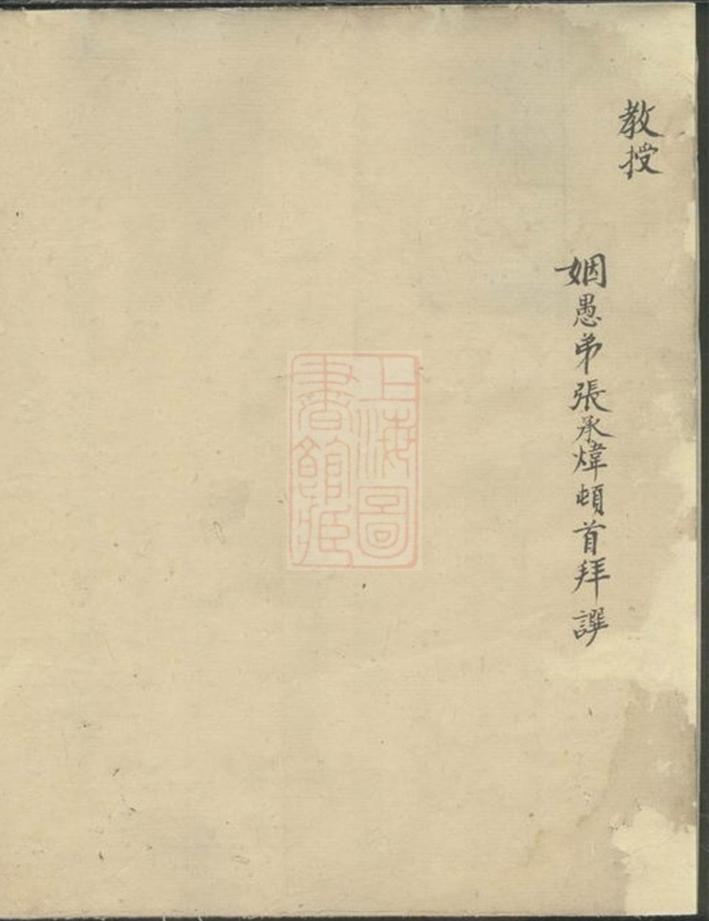 教授
姻愚弟張承煒頓首拜譔
上海圖
書館藏